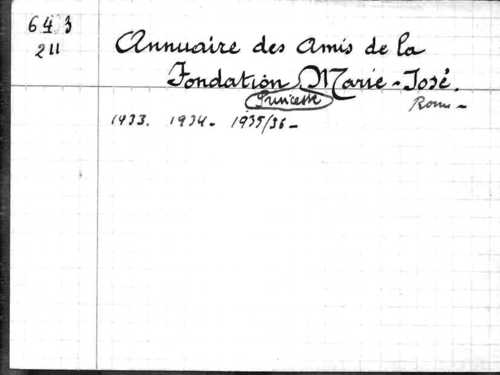 643
211
Annuaire des Amis de la
Fondation Marie-José.
Princesse
Rome -
1933. 1934. 1935/36 -